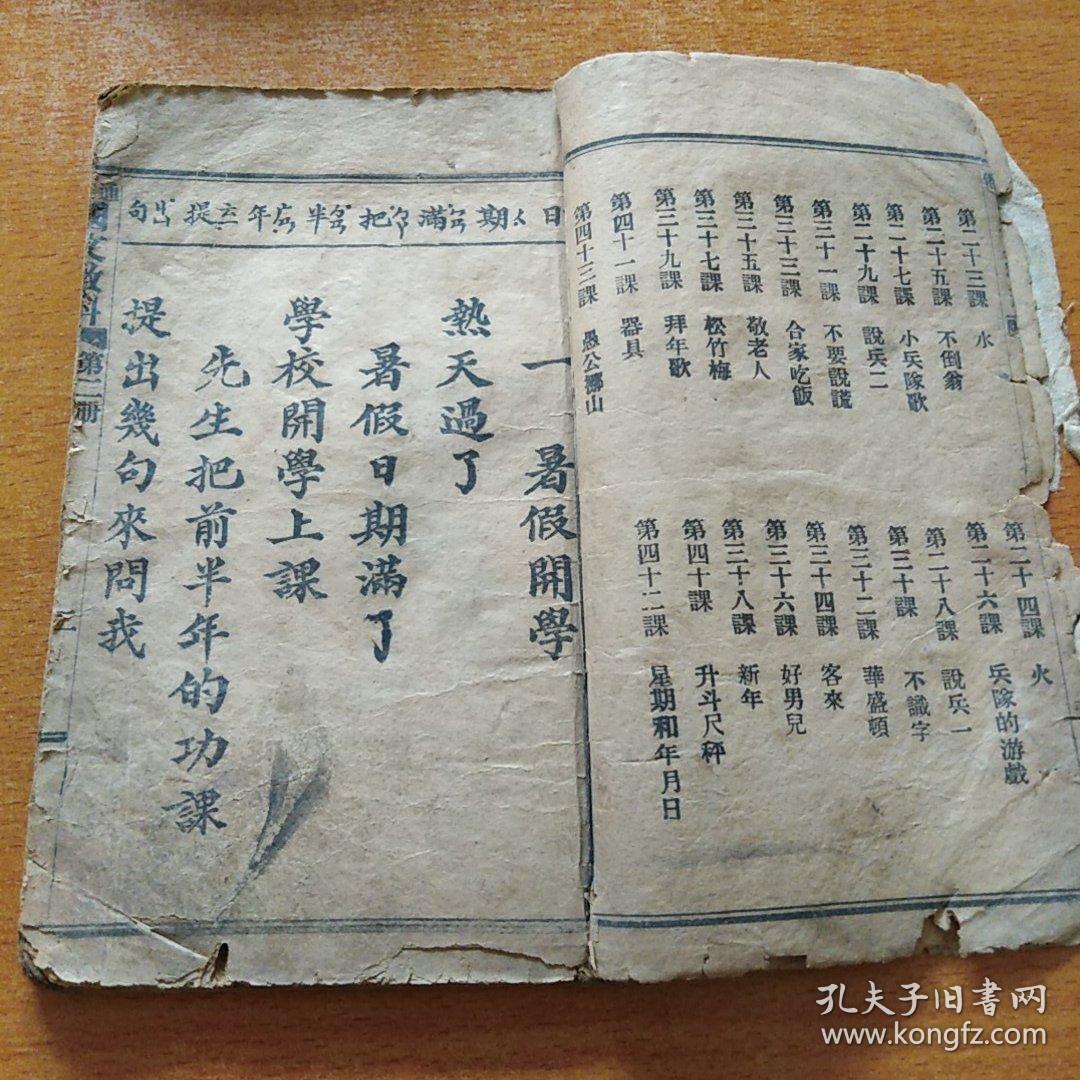 第二十三課 水
第二十五課 不倒翁
第二十七課 小兵隊歌
第二十九課 說兵二
第三十一課 不要說謊
第三十三課 合家吃飯
第三十五課 敬老人
第三十七課 松竹梅
第三十九課 拜年歌
第四十一課 器具
第四十三課 愚公挪山
第二十四課 火
第二十六課 兵隊的游戲
第二十八課 說兵一
第三十課 不識字
第三十二課 華盛頓
第三十四課 客來
第三十六課 好男兒
第三十八課 新年
第四十課 升斗尺秤
第四十二課 星期和年月日
日期滿把半年提出句
一 暑假開學
熱天過了
暑假日期滿了
學校開學上課
先生把前半年的功課
提出幾句來問我
文教科 第二冊
孔夫子旧書网
www.kongfz.com